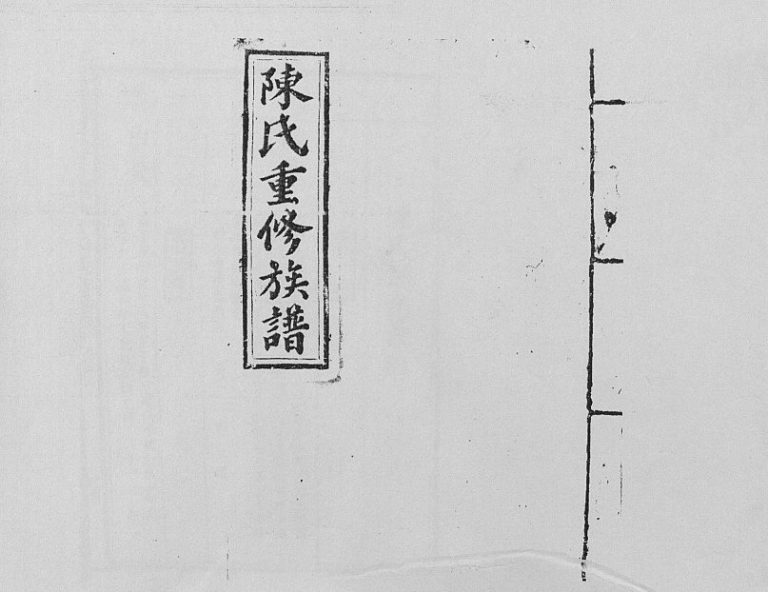 陳氏重修族譜